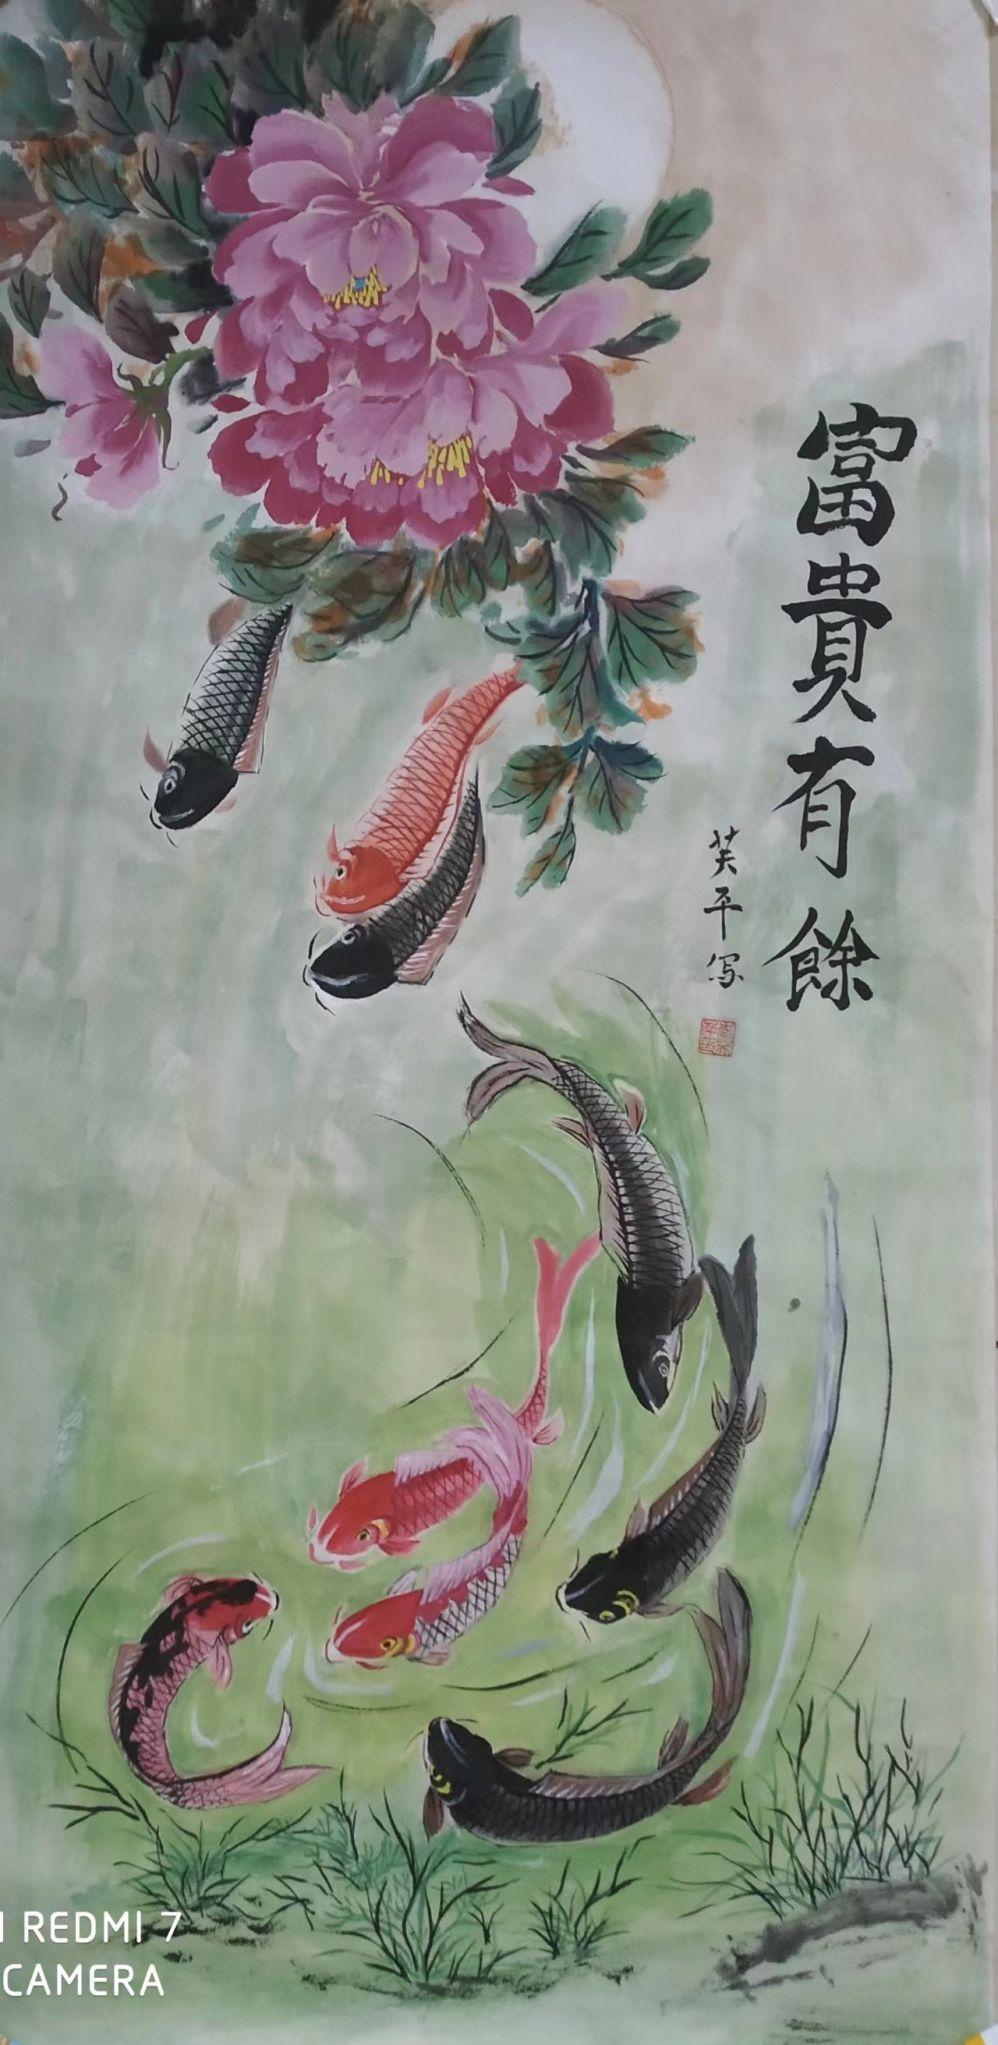 富貴有餘
笑平写
REDMI 7
CAMERA